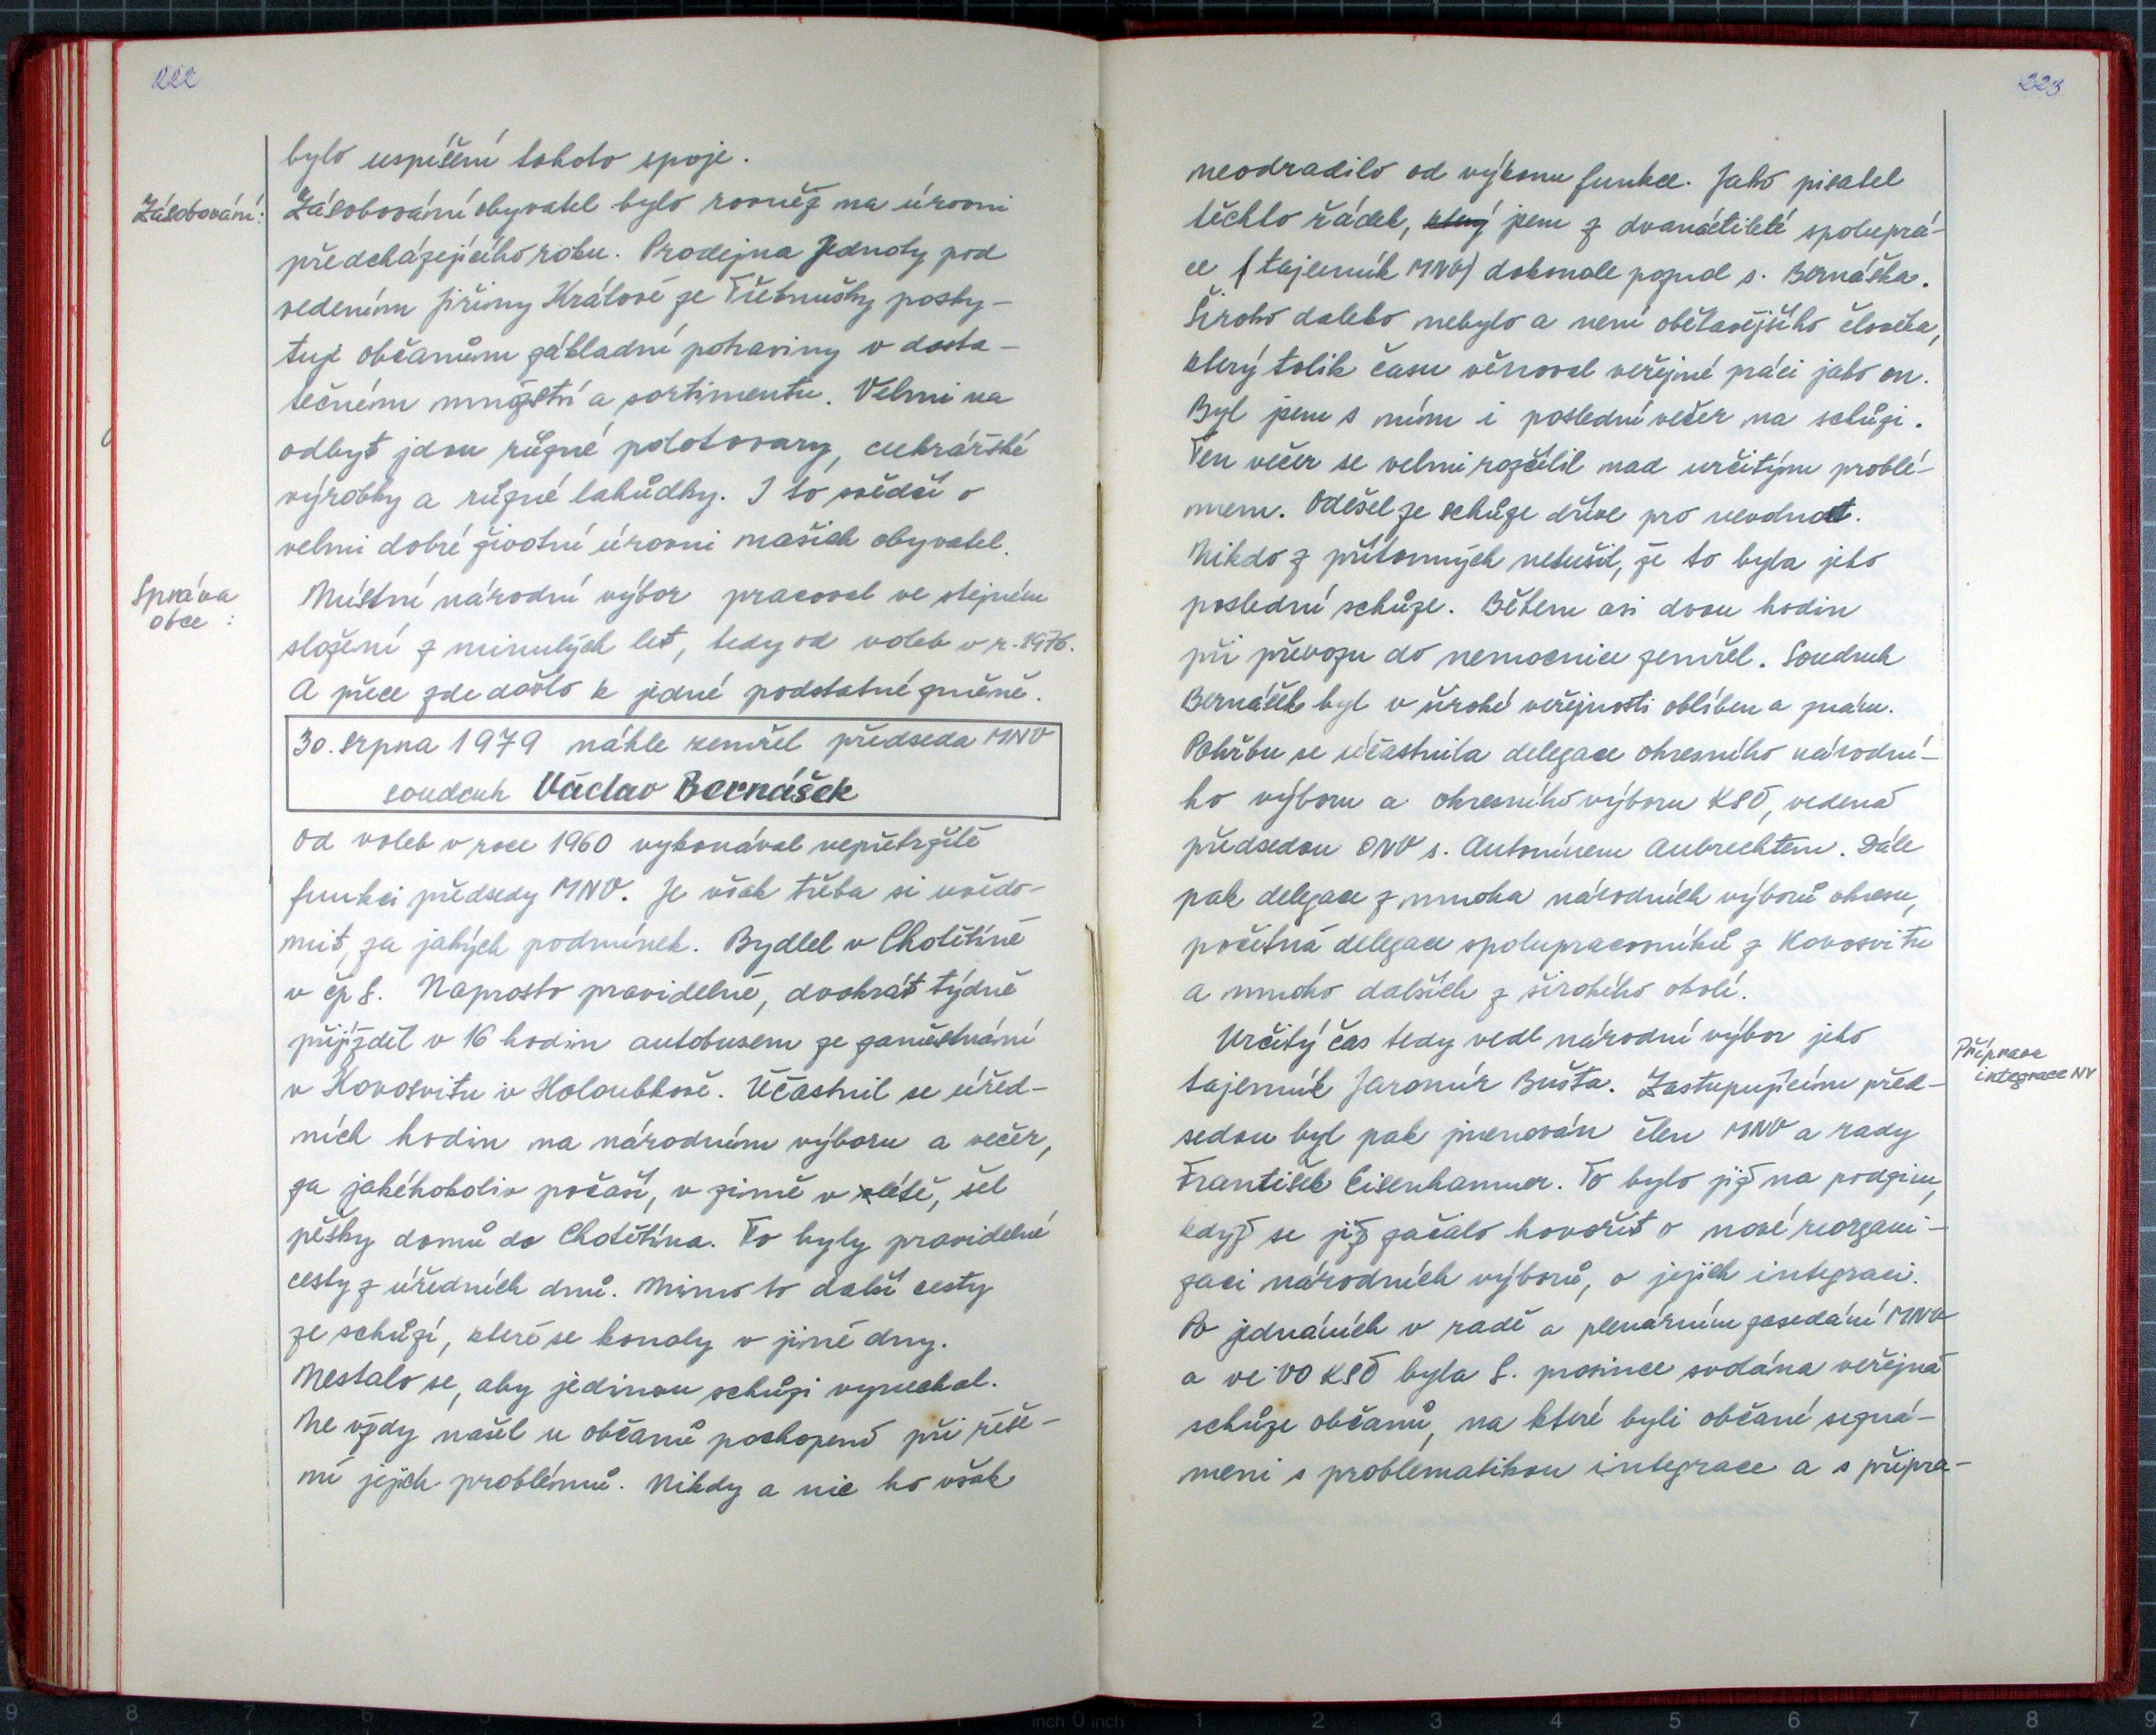 222
bylo uspíšení tohoto spoje.
Zásobování:
Zásobování obyvatel bylo rovněž na úrovni
předcházejícího roku. Prodejna Jednoty pod
vedením Jiřiny Králové ze Třebnušky posky-
tuje občanům základní potraviny v dosta-
tečném množství a sortimentu. Velmi na
odbyt jdou různé polotovary, cukrářské
výrobky a různé lahůdky. I to svědčí o
velmi dobré životní úrovni našich obyvatel.
Správa
obce:
Místní národní výbor pracoval ve stejném
složení z minulých let, tedy od voleb v r. 1976.
A přece zde došlo k jedné podstatné změně.
30. srpna 1979 náhle zemřel předseda MNV
soudruh Václav Bernášek
Od voleb v roce 1960 vykonával nepřetržitě
funkci předsedy MNV. Je však třeba si uvědo-
mit, za jakých podmínek. Bydlel v Chotětíně
v čp 8. Naprosto pravidelně, dvakrát týdně
přijížděl v 16 hodin autobusem ze zaměstnání
v Kovosvitu v Holoubkově. Účastnil se úřed-
ních hodin na národním výboru a večer,
za jakéhokoliv počasí, v zimě v létě, šel
pěšky domů do Chotětína. To byly pravidelné
cesty z úředních dnů. Mimo to další cesty
ze schůzí, které se konaly v jiné dny.
Nestalo se, aby jedinou schůzi vynechal.
Ne vždy našel u občanů pochopení při řeše-
ní jejich problémů. Nikdy a nic ho však
223
neodradilo od výkonu funkce. Jako pisatel
těchto řádek, který jsem z dvanáctileté spoluprá-
ce (tajemník MNV) dokonale poznal s. Bernáška.
Široko daleko nebylo a není obětavějšího člověka,
který tolik času věnoval veřejné práci jako on.
Byl jsem s ním i poslední večer na schůzi.
Ten večer se velmi rozčílil nad určitým problé-
mem. Odešel ze schůze dříve pro nevolnost.
Nikdo z přítomných netušil, že to byla jeho
poslední schůze. Během asi dvou hodin
při převozu do nemocnice zemřel. Soudruh
Bernášek byl v široké veřejnosti oblíben a znám.
Pohřbu se účastnila delegace okresního národní-
ho výboru a okresního výboru KSČ, vedená
předsedou ONV s. Antonínem Aubrechtem. Dále
pak delegace z mnoha národních výborů okresu,
početná delegace spolupracovníků z Kovosvitu
a mnoho dalších z širokého okolí.
Určitý čas tedy vedl národní výbor jeho
Příprava
integrace NV
tajemník Jaromír Bušta. Zastupujícím před-
sedou byl pak jmenován člen MNV a rady
František Eisenhammer. To bylo již na podzim,
když se již začalo hovořit o nové reorgani-
zaci národních výborů, o jejich integraci.
Po jednáních v radě a plenárním zasedání MNV
a ve VO KSČ byla 8. prosince svolána veřejná
schůze občanů, na které byli občané sezná-
meni s problematikou integrace a s přípra-